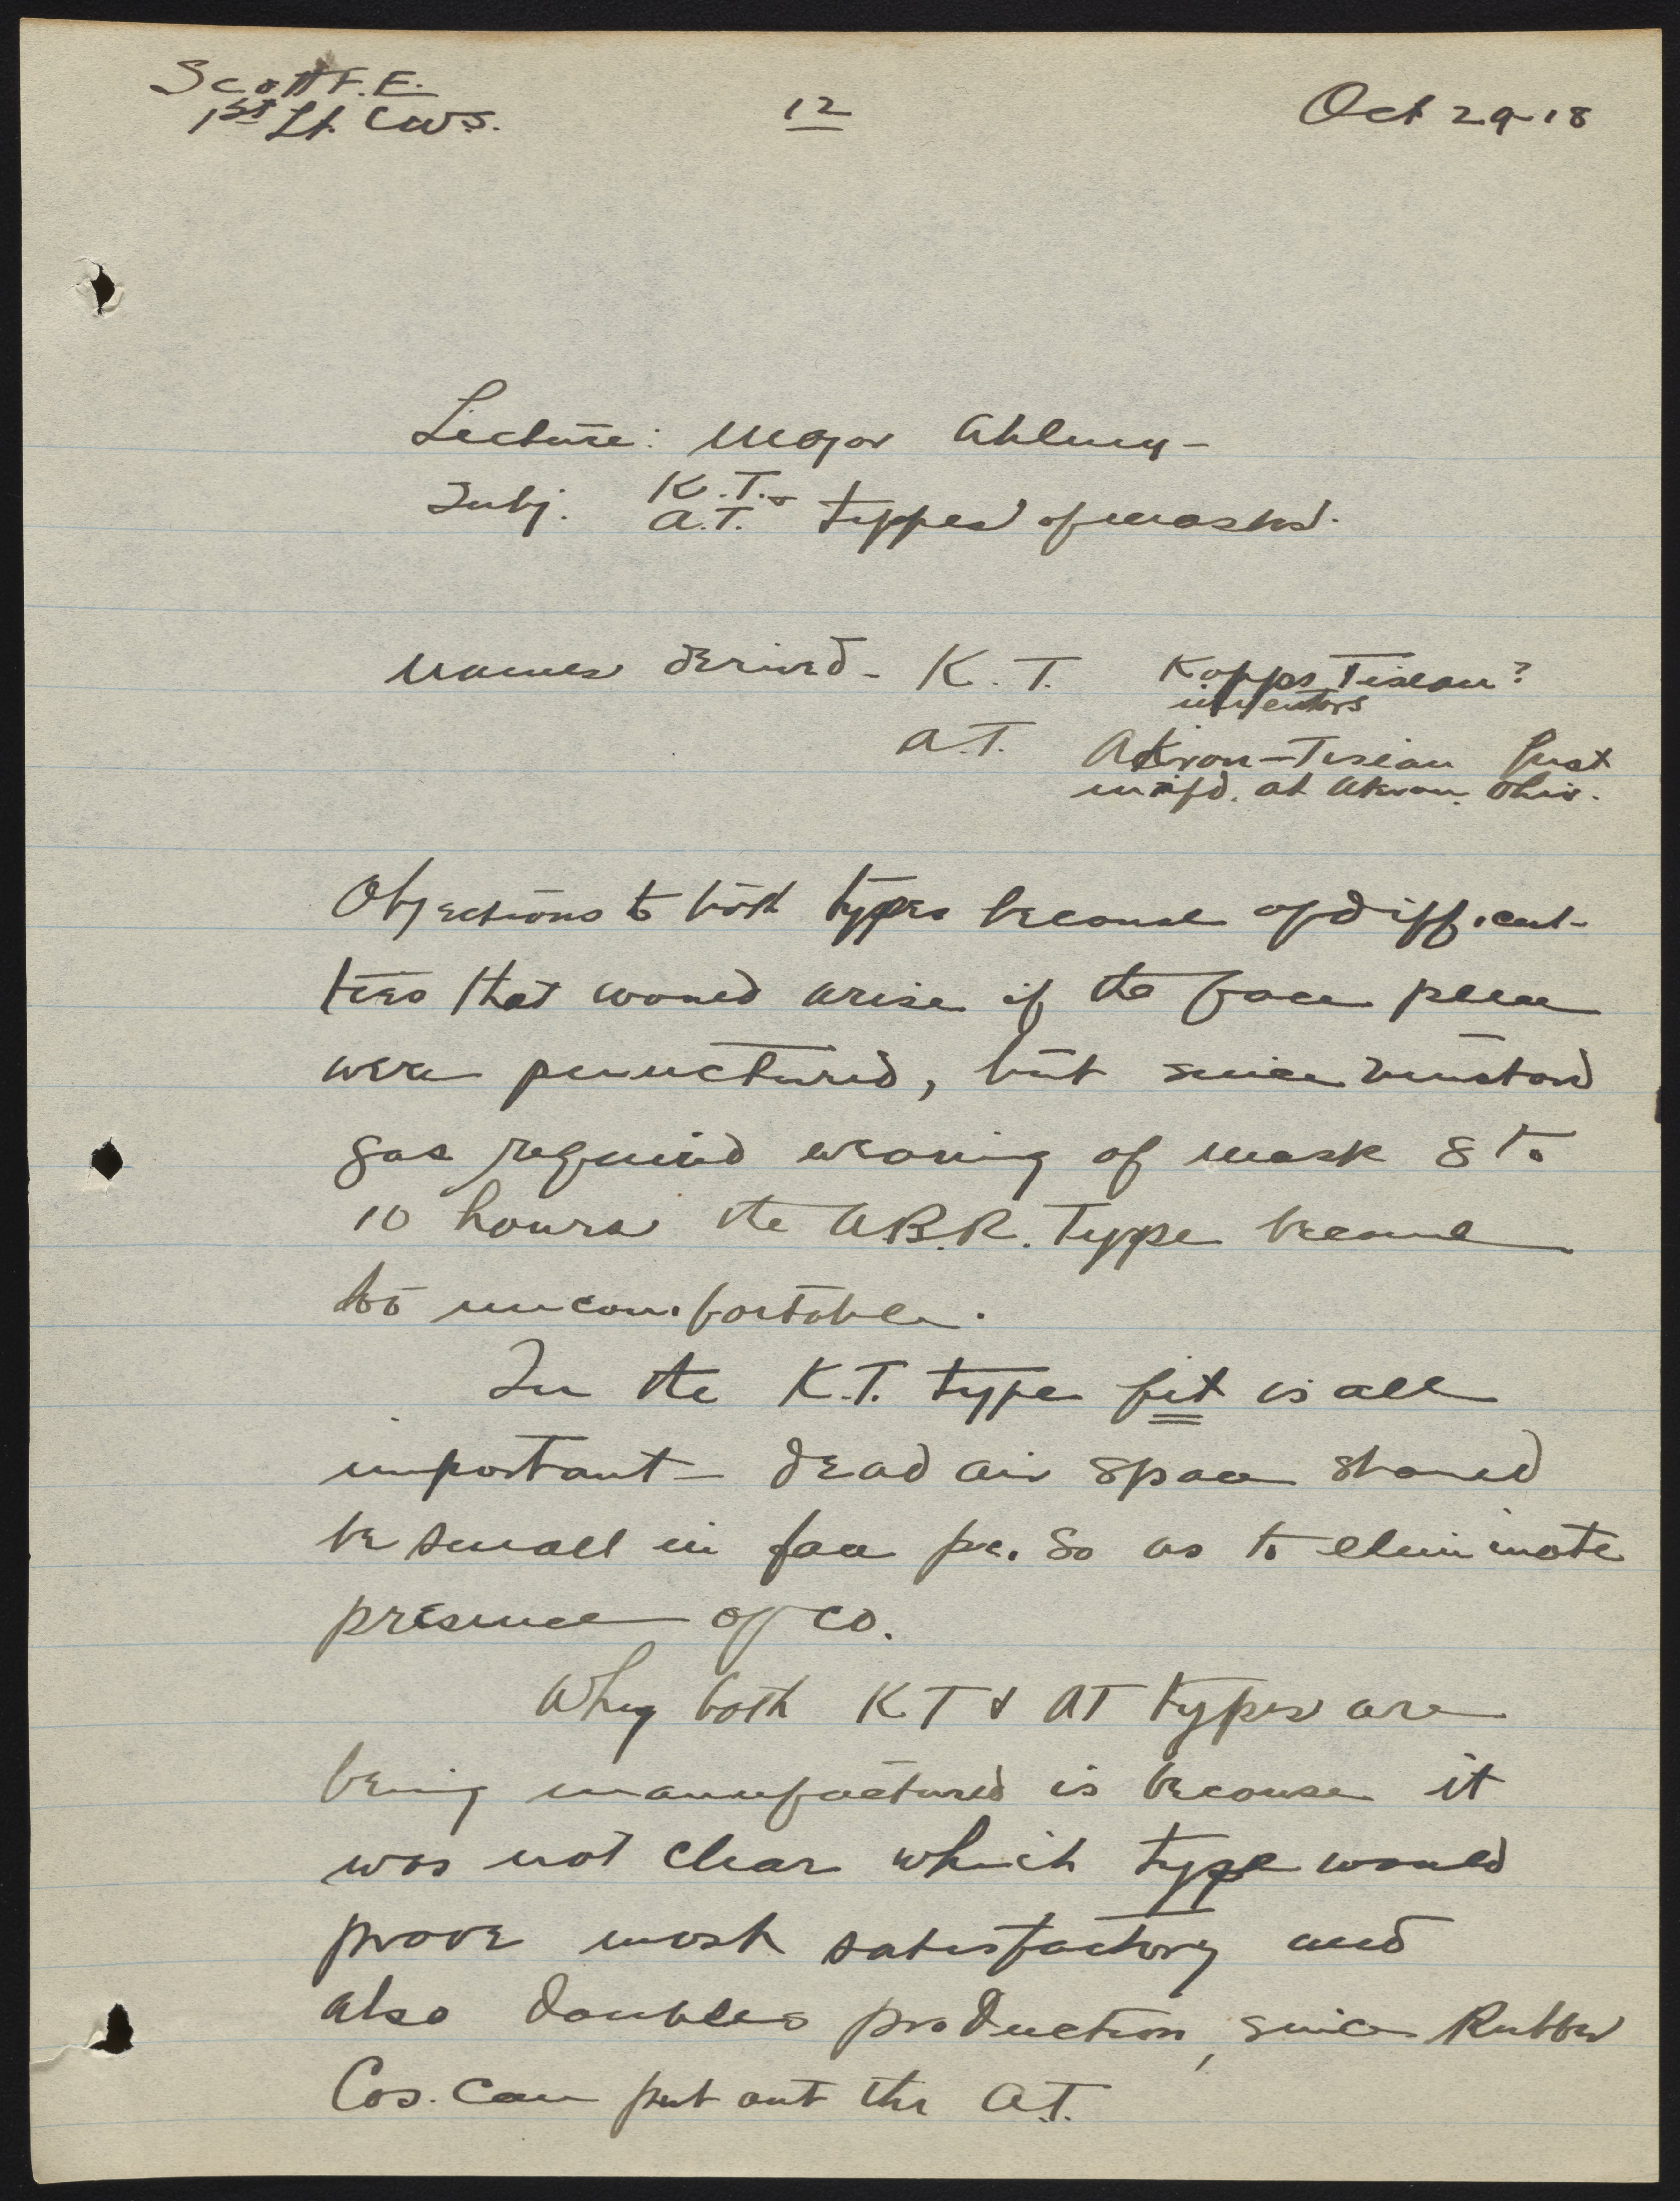 Scott F. E.
1st Lt. CWS.
12
Oct 29-18
Lecture: Major
Subj. K.T. &
A.T. types of masks.
Names derived - K.T. Kopps Tissau?
inventors
A.T. Akron-Tissau first
m'f'd. at Akron. Ohio.
Objections to both types because of difficul-
ties that would arise if the face piece
were punctured, but since mustard
gas required wearing of mask 8 to
10 hours the A.B.R. Type became
too uncomfortable.
In the K.T. type fit is all
important - dead air space should
be small in face pc. so as to eliminate
presence of CO.
Why both KT & AT types are
being manufactured is because it
was not clear which type would
prove most satisfactory and
also doubles production, since Rubber
Cos. can put out the A.T.